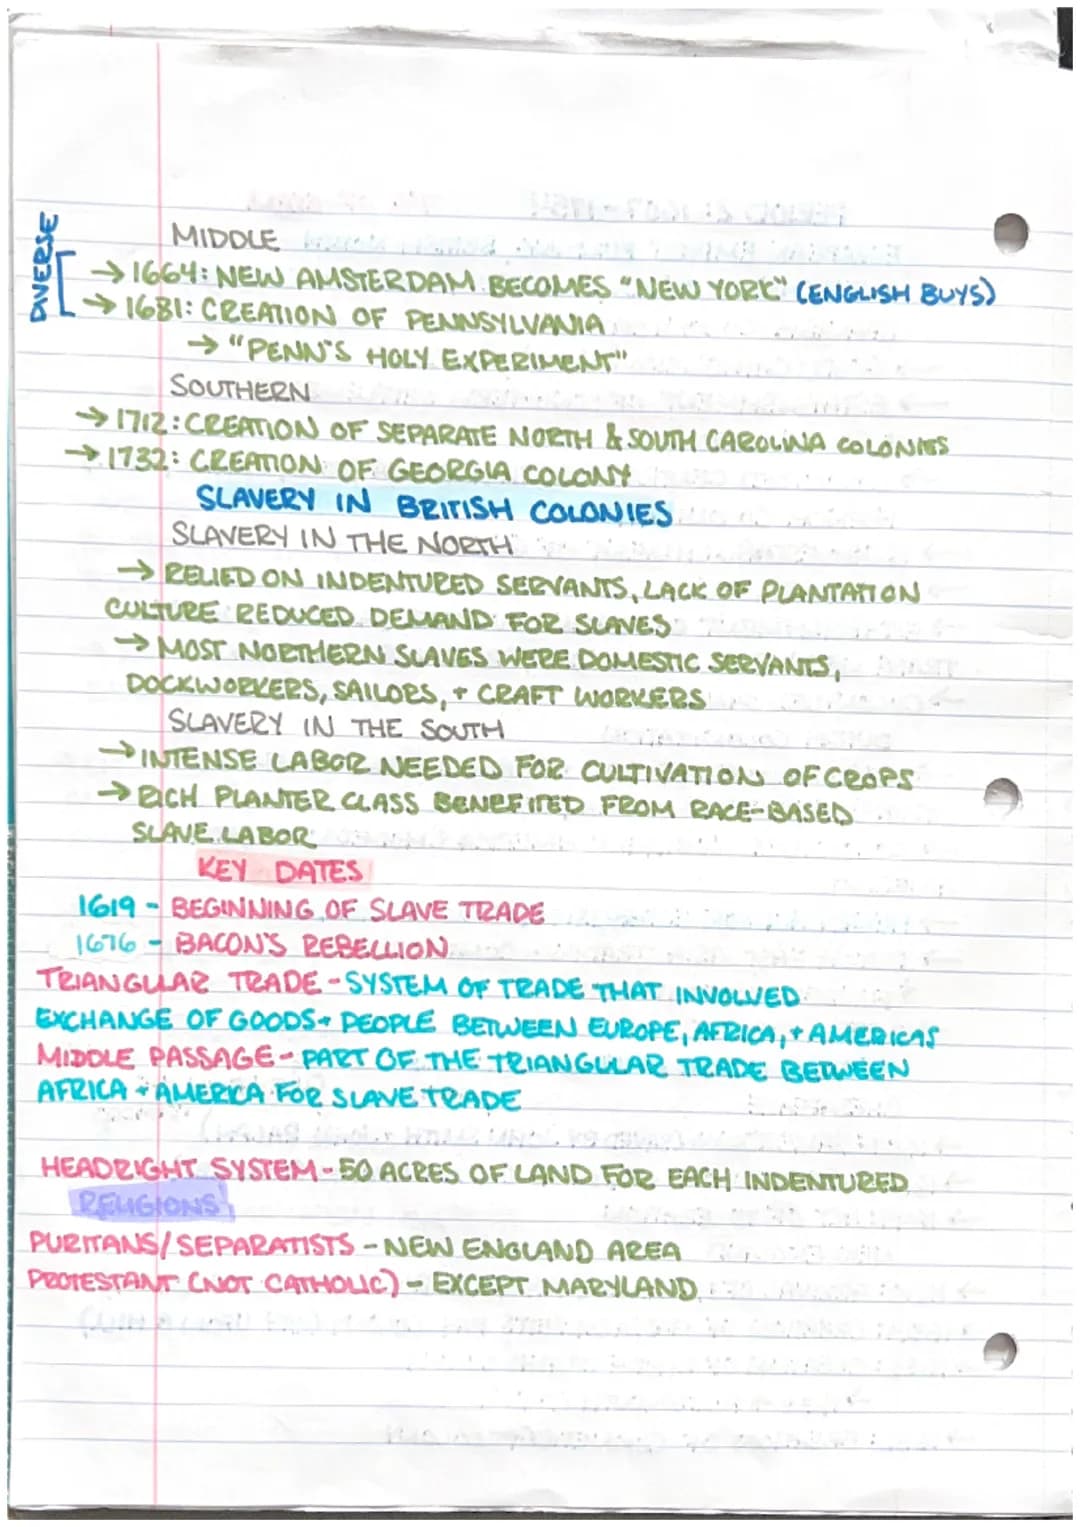 DIVERSE
MIDDLE
→ 1664: NEW AMSTERDAM BECOMES "NEW YORK" (ENGLISH BUYS)
→ 1681: CREATION OF PENNSYLVANIA
→ "PENN'S HOLY EXPERIMENT"
SOUTHERN
→ 1712: CREATION OF SEPARATE NORTH & SOUTH CAROLINA COLONIES
→ 1732: CREATION OF GEORGIA COLONY
SLAVERY IN BRITISH COLONIES
SLAVERY IN THE NORTH
→ RELIED ON INDENTURED SERVANTS, LACK OF PLANTATION
CULTURE REDUCED DEMAND FOR SLAVES
→ MOST NORTHERN SLAVES WERE DOMESTIC SERVANTS,
DOCKWORKERS, SAILORS, + CRAFT WORKERS
SLAVERY IN THE SOUTH
→ INTENSE LABOR NEEDED FOR CULTIVATION OF CROPS
→ RICH PLANTER CLASS BENEFITED FROM RACE-BASED
SLAVE LABOR
KEY DATES
1619 - BEGINNING OF SLAVE TRADE
1676 - BACON'S REBELLION
TRIANGULAR TRADE - SYSTEM OF TRADE THAT INVOLVED
EXCHANGE OF GOODS + PEOPLE BETWEEN EUROPE, AFRICA, + AMERICAS
MIDDLE PASSAGE - PART OF THE TRIANGULAR TRADE BETWEEN
AFRICA + AMERICA FOR SLAVE TRADE
HEADRIGHT SYSTEM - 50 ACRES OF LAND FOR EACH INDENTURED
RELIGIONS
PURITANS/SEPARATISTS - NEW ENGLAND AREA
PROTESTANT (NOT CATHOLIC) - EXCEPT MARYLAND